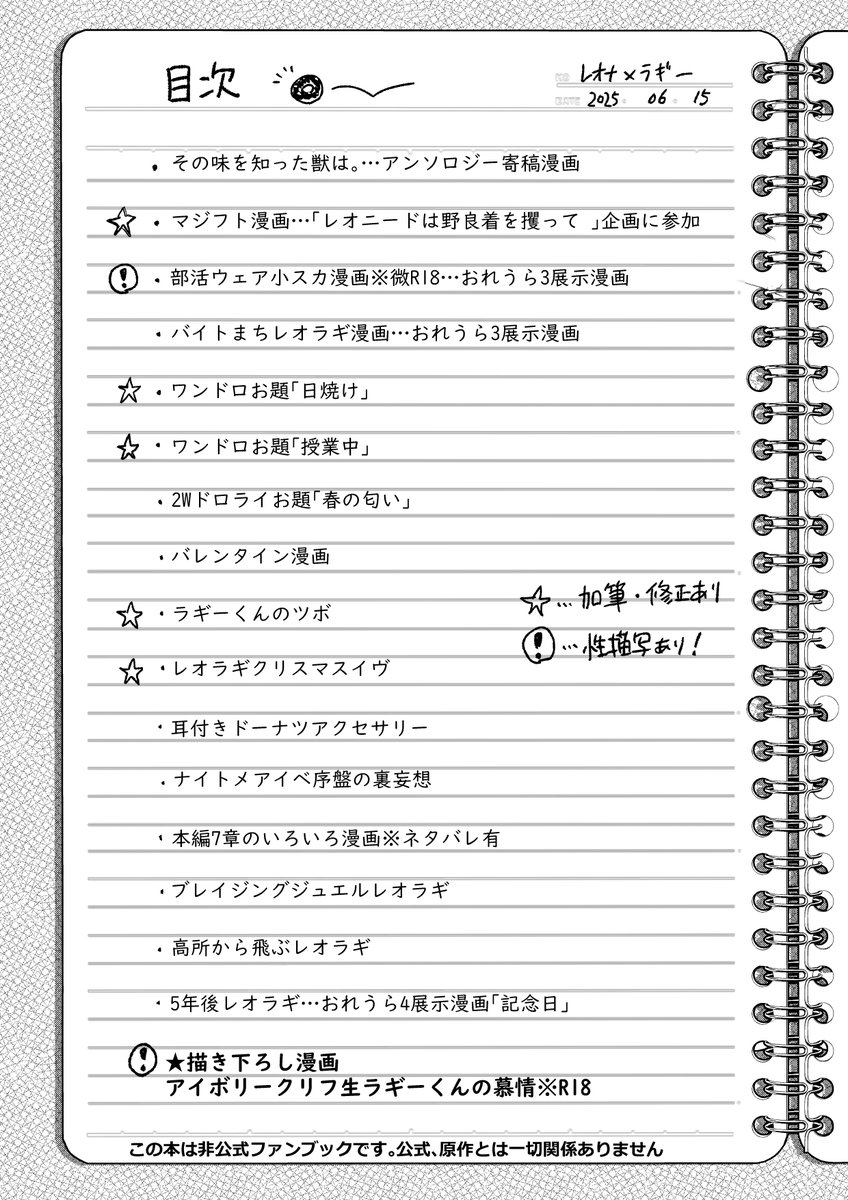 目次
NO レオナ×ラギー
DATE 2025. 06. 15
・その味を知った獣は。…アンソロジー寄稿漫画
☆・マジフト漫画…「レオニードは野良着を攫って 」企画に参加
!・部活ウェア小スカ漫画※微R18…おれうら3展示漫画
・バイトまちレオラギ漫画…おれうら3展示漫画
☆・ワンドロお題「日焼け」
☆・ワンドロお題「授業中」
・2Wドロライお題「春の匂い」
・バレンタイン漫画
☆…加筆・修正あり
☆・ラギーくんのツボ
!…性描写あり!
☆・レオラギクリスマスイヴ
・耳付きドーナツアクセサリー
・ナイトメアイベ序盤の裏妄想
・本編7章のいろいろ漫画※ネタバレ有
・ブレイジングジュエルレオラギ
・高所から飛ぶレオラギ
・5年後レオラギ…おれうら4展示漫画「記念日」
! ★描き下ろし漫画
アイボリークリフ生ラギーくんの慕情※R18
この本は非公式ファンブックです。公式、原作とは一切関係ありません